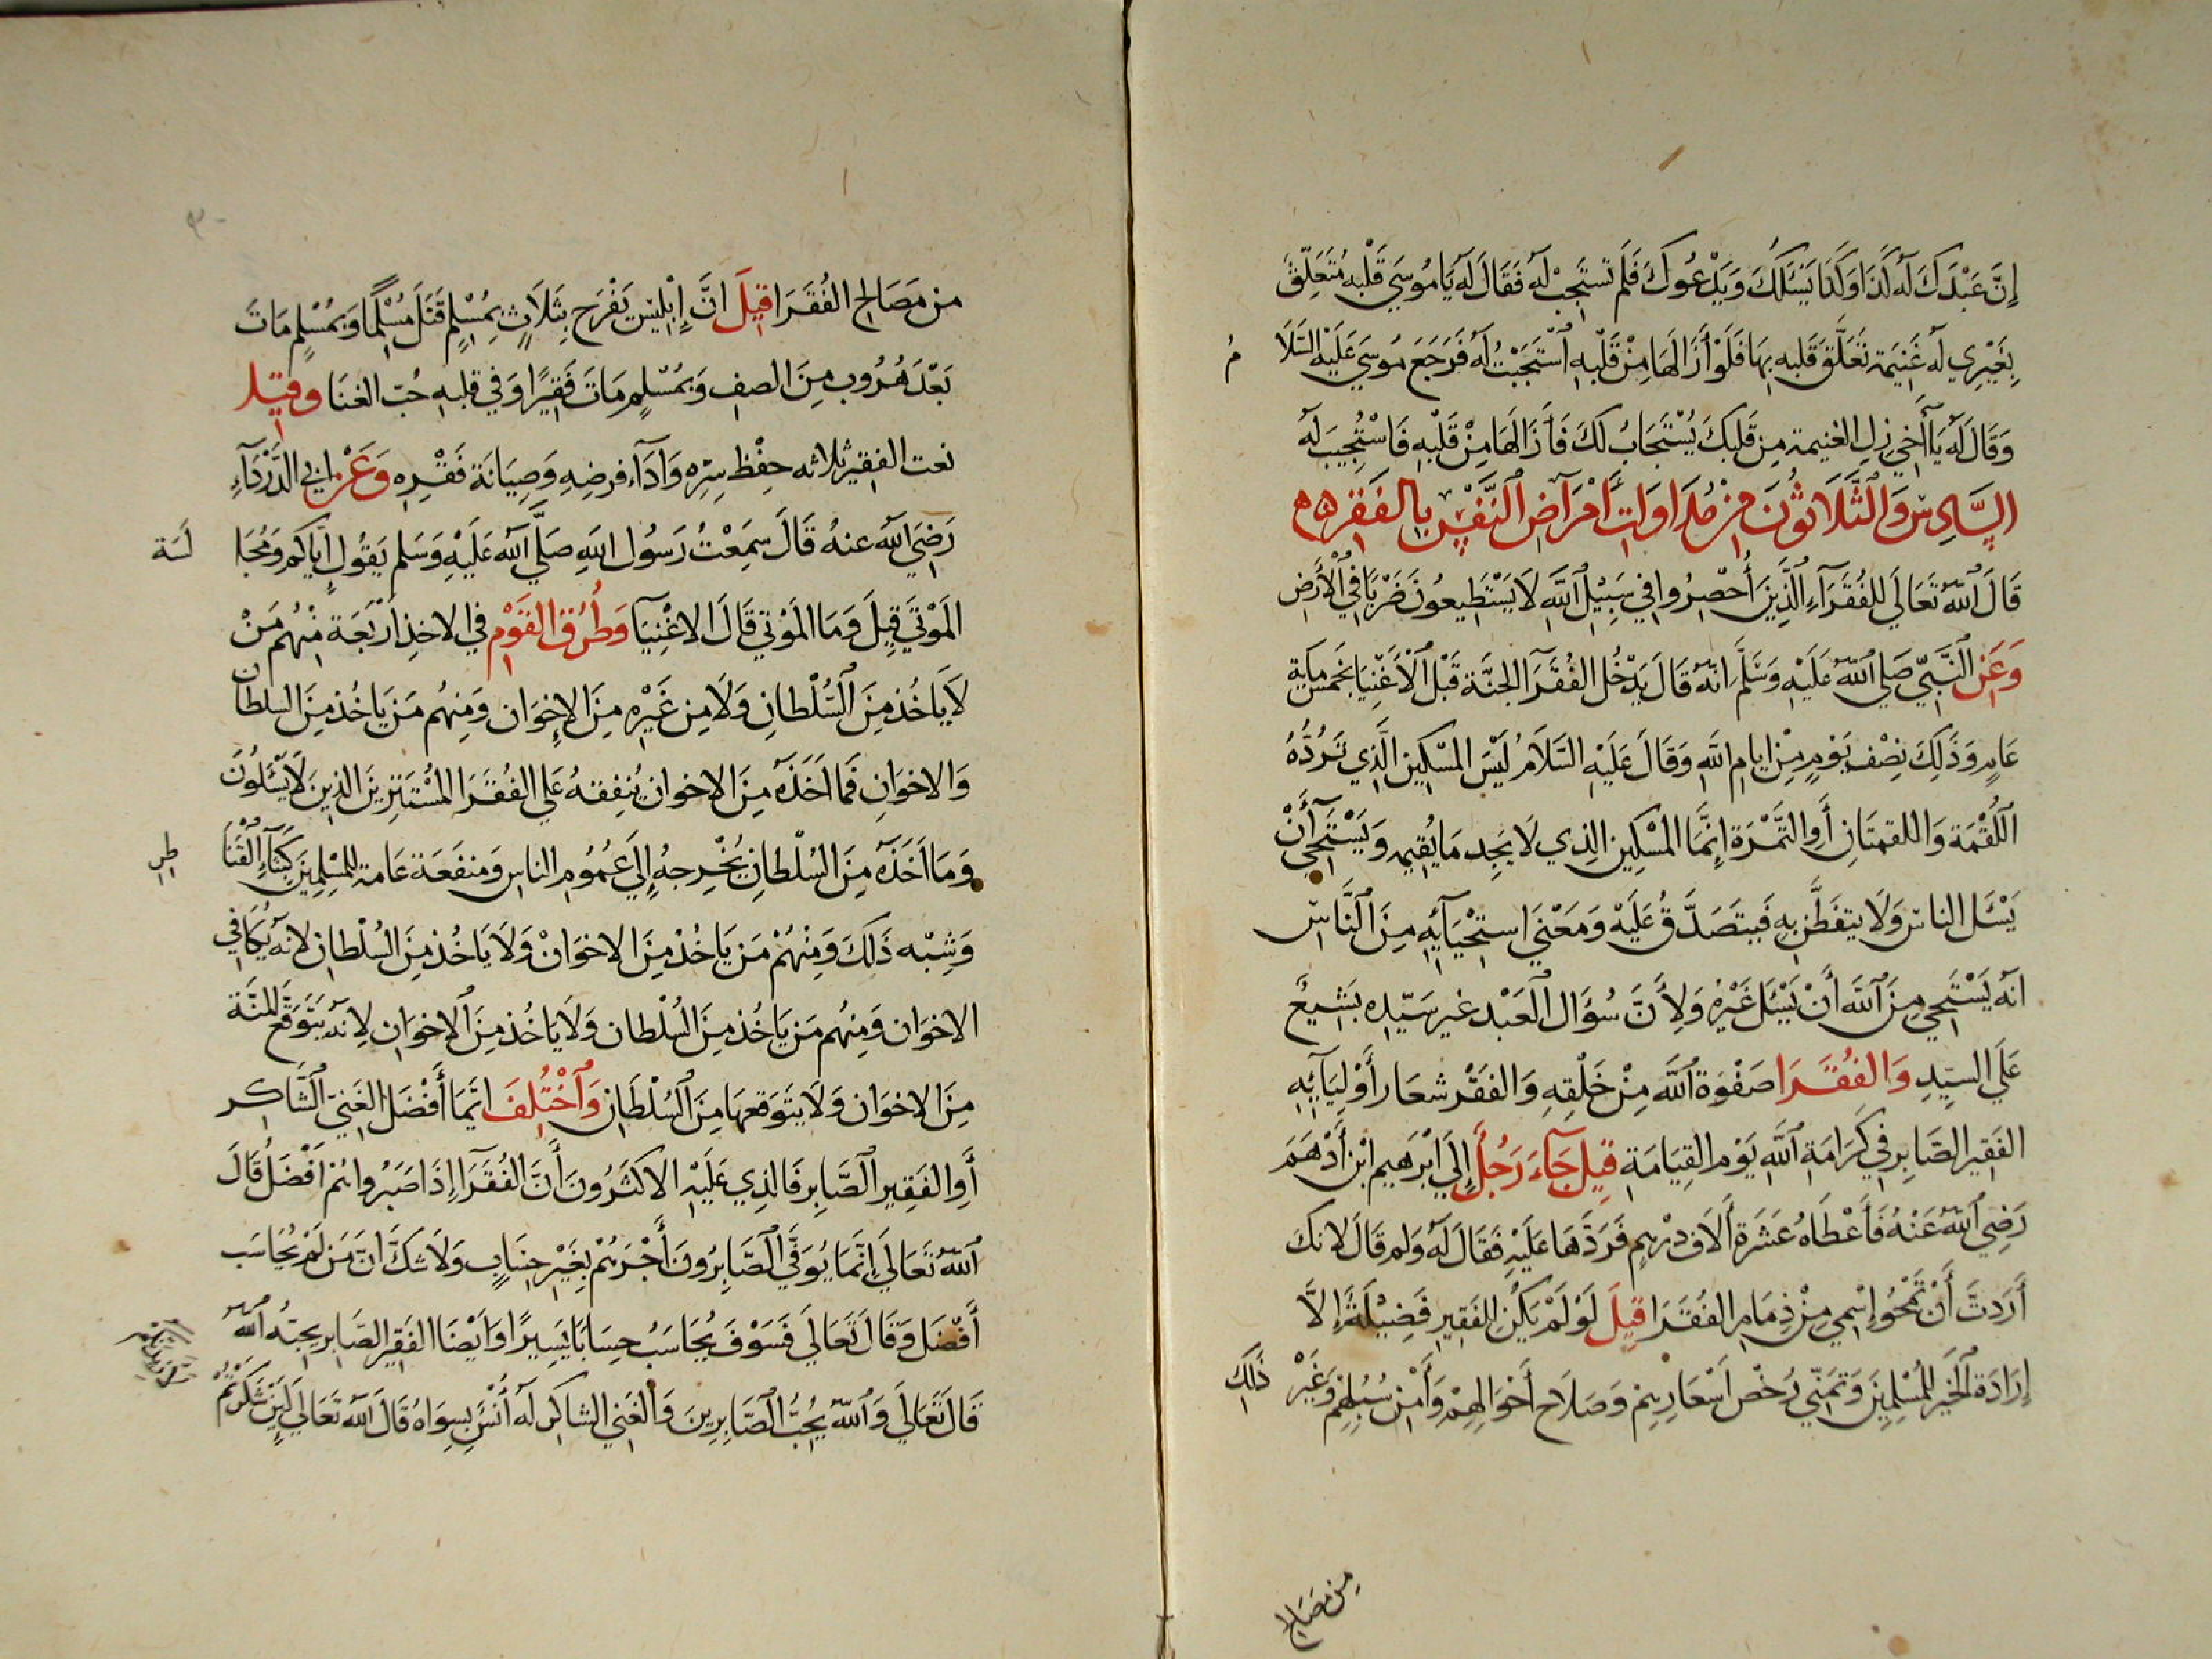 إِنَّ عَبْدَكَ لَهُ كَذَا وَكَذَا يَسْئَلُكَ وَيَدْعُوكَ فَلَمْ تَسْتَجِبْ لَهُ فَقَالَ لَهُ يَا مُوسَي قَلْبُهُ مُتَعَلِّقٌ
بِغَيْرِي لَهُ غَنِيمَة تَعَلَّقَ قَلْبه بِهَا فَلَوْ أَزَالَهَا مِنْ قَلْبِهِ ٱسْتَجَبْتُ لَهُ فَرَجَعَ مُوسَي عَلَيْهِ السَّلَا م
وَقَالَ لَهُ يَا أَخِي زِلِ الغنيمة مِن قَلبكَ يُسْتَجَابُ لَكَ فَأَزَالَهَا مِنْ قَلْبِهِ فَاسْتُجِيبَ لَهُ
السَّادِسُ وَالثَّلَاثُونَ مِنْ مُدَاوَاتِ أَمْرَاضِ النَّفْسِ بِالفَقْرِ
قَالَ ٱللَّهُ تَعَالَي لِلفُقَرَآءِ ٱلَّذِينَ أُحْصِرُوا فِي سَبِيْلِ ٱللَّهِ لَا يَسْتَطِيعُونَ ضَرْبًا فِي ٱلْأَرْضِ
وَعَنِ ٱلنَّبِيِّ صَلي ٱللَّهُ عَلَيْهِ وَسَلَّمَ انَّهُ قَالَ يَدْخُل الفُقَرَآ الجَنَّة قَبْلَ ٱلْأَغْنِيَا بخَمْس مِايَةِ
عَامٍ وَذَلِكَ نِصْف يَوْمٍ مِنْ ايام اللَّهِ وَقَالَ عَلَيْهِ السَّلَامُ لَيْسَ المسْكِين الَّذِي تَرُدُّهُ
اللُّقْمَة وَاللقمتَانِ أَوِ التَّمْرَة إِنَّمَا المسْكِين الذِي لَا يَجِد مَا يُقِيمه وَيَسْتَحِي أَنْ
يَسْئَل الناسَ وَلَا يتفَطَّن بِهِ فَيتَصَدَّقُ عَلَيْه وَمَعْنَي اسْتِحْيَآيِهِ مِنَ ٱلنَّاسِ
انهُ يَسْتَحِي مِنَ ٱللَّهِ أَنْ يَسْئَلَ غَيْرَهُ وَلِأَنَّ سُؤَال ٱلعَبْد غير سَيِّدِه تَشْنِيعٌ
عَلَي السيِّدِ وَالفُقَرَا صَفْوَة ٱللَّهِ مِنْ خَلْقِهِ وَالفَقْر شعَار أَوْلِيَآئِهِ
الفَقِير الصَّابِر فِي كَرَامَة ٱللَّهِ يَوْم القِيَامَة قِيلَ جَآءَ رَجُلٌ إِلَي ابْرَهِيم ابْن أَدْهَمَ
رَضِي ٱللَّهُ عَنْهُ فَأَعْطَاهُ عَشَرَة أَلَاف دِرْهِمٍ فَرَدَّهَا عَلَيْهِ فَقَالَ لَهُ وَلم قَالَ لانك
أَرَدتَ أَنْ تَمْحُو إِسْمِي مِنْ ذِمَامِ الفُقَرَا قِيلَ لَوْ لَمْ يَكُنْ لِلفَقِيرِ فَضِيْلَةٌ إِلَّا
إِرَادَة ٱلخَيْر لِلمُسْلِمِينَ وَتَمَنِّي رُخْص أَسْعَارِهِمْ وَصَلَاح أَحْوَالِهِمْ وَأَمْن سُبُلِهِمْ وَغَيْر ذَلِكَ
مِن مصَالِح
من مَصَالِح الفُقَرَا قِيلَ انَّ إِبْلِيْسَ يَفْرَح بِثَلَاثٍ بِمُسْلِمٍ قَتَلَ مُسْلِمًا وَبِمُسْلِمٍ مَاتَ
بَعْدَ هُرُوب مِنَ الصف وَبمُسْلِمٍ مَاتَ فَقِيرًا وَفي قلبهِ حُبّ الغنَا وقيل
نعت الفقير ثلاثه حِفْظ سِرِّه وَادَآء فرضِهِ وَصِيَانَة فَقْرِه وَعَنْ ابي الدَّرْدَآءِ
رَضِيَ اللَّهُ عنهُ قَالَ سَمِعْتُ رَسُول اللَّهِ صَلَّي ٱللَّه عَلَيْهِ وَسَلم يَقُول إِيَّاكم وَمُجَا لَسَة
المَوْتَي قِيلَ وَمَا المَوْتي قَالَ الاغْنِيَا وَطُرُق القَوْمِ في الاخذِ أَرْبَعَة مِنْهُم مَنْ
لَا يَاخُذ مِنَ ٱلسُّلْطَانِ وَلَا مِن غَيْرِه مِنَ الإِخْوَان وَمِنهُم مَن يَاخُذ مِنَ السلطَان
وَالاخوَانِ فَمَا اخَذَهُ مِنَ الاخوان يُنفِقهُ عَلي الفُقَرَا المُسْتَتِرِينَ الذِينَ لَا يَسْئَلُونَ
وَمَا اخَذَهُ مِنَ السُلْطَانِ يُخْرِجهُ إِلَي عُمُومِ الناس وَمَنفَعَة عَامة لِلمُسْلِمِينَ كَبِنَآءِ القَنَا طر
وَشِبْه ذَلكَ وَمِنْهُمْ مَن يَاخُذ مِنَ الاخوَانْ وَلَا يَاخُذ مِنَ السُلْطانِ لانهُ يُكَافي
الاخوَان وَمِنهُم مَن يَاخُذ مِنَ السُلْطان وَلَا يَاخُذ مِنَ ٱلاخوَانِ لِانهُ يَتَوَقَّع المِنَّة
مِنَ الاخوَان وَلَا يتَوَقعهَا مِنَ ٱلسُلْطَانِ وَٱخْتُلِفَ ايّمَا أَفْضَل الغَنيّ ٱلشَّاكر
أَوِ الفَقِير ٱلصَّابِر فَالذِي عَلَيْهِ الاكثَرُونَ أَنَّ الفُقَرَآ إِذَا صَبَرُوا هُمْ افْضَلُ قَالَ
ٱللَّهُ تَعَالَي إِنَّمَا يُوَفَّي ٱلصَّابِرُونَ أَجْرَهُمْ بِغَيْرِ حِسَابٍ وَلَا شكَّ انَّ مَن لَمْ يُحَاسَب
أَفْضَل وَقَالَ تَعَالَي فَسَوْفَ يُحَاسَبُ حِسَابًا يَسِيرًا وَايْضَا الفَقير الصَّابر يحبّهُ ٱللَّهُ
قَالَ تَعَالَي وَٱللَّهُ يُحِبُّ ٱلصَّابِرِينَ وَالغَنِي الشاكر لَهُ أُنْسٌ بِسِوَاهُ قَالَ ٱللَّهُ تَعَالَي لَئِنْ شَكَرْتُمْ